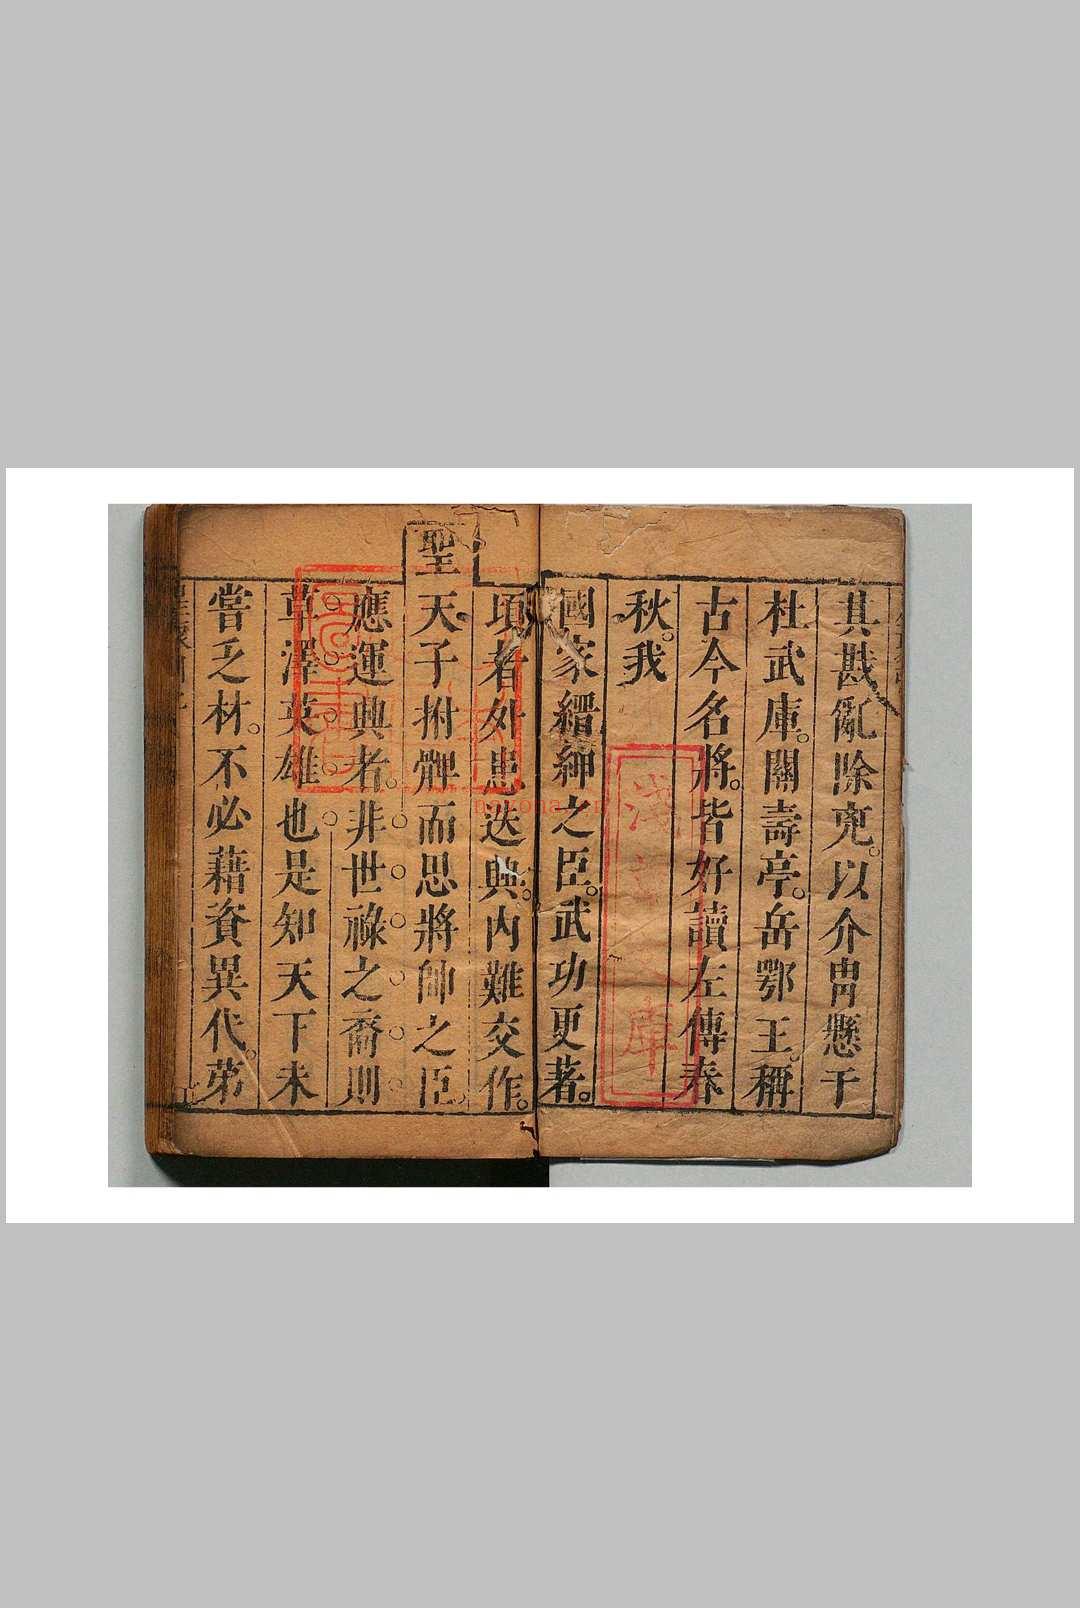 其戡亂除兇。以介冑懸于
杜武庫。關壽亭。岳鄂王。稱
古今名將。皆好讀左傳春
秋。我
國家縉紳之臣。武功更著。
頃者外患迭興。內難交作。
聖
天子拊髀而思將帥之臣。
應運興者。非世祿之裔。則
草澤英雄也。是知天下未
嘗乏材。不必藉資異代。第
淺草文庫